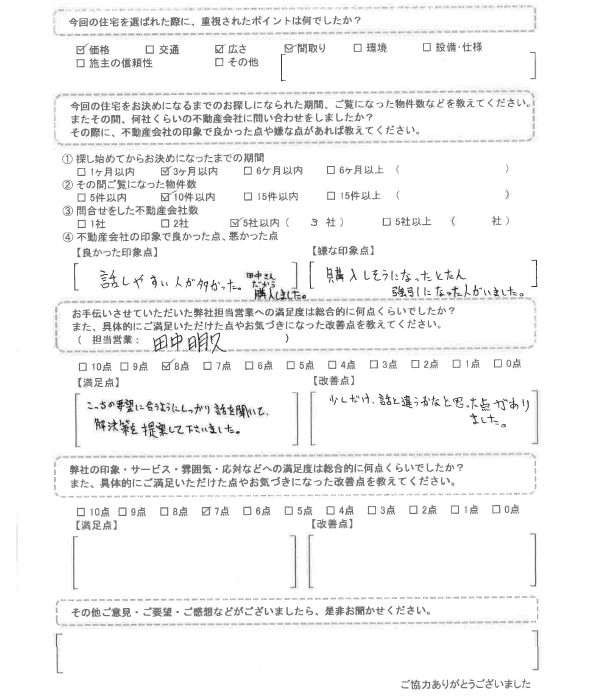 今回の住宅を選ばれた際に、重視されたポイントは何でしたか？
☑ 価格 ☐ 交通 ☑ 広さ ☑ 間取り ☐ 環境 ☐ 設備・仕様
☐ 施主の信頼性 ☐ その他
今回の住宅をお決めになるまでのお探しになられた期間、ご覧になった物件数などを教えてください。
またその間、何社くらいの不動産会社に問い合わせをしましたか？
その際に、不動産会社の印象で良かった点や嫌な点があれば教えてください。
① 探し始めてからお決めになったまでの期間
☐ 1ヶ月以内 ☑ 3ヶ月以内 ☐ 6ヶ月以内 ☐ 6ヶ月以上 （ ）
② その間ご覧になった物件数
☐ 5件以内 ☑ 10件以内 ☐ 15件以内 ☐ 15件以上 （ ）
③ 問合せをした不動産会社数
☐ 1社 ☐ 2社 ☑ 5社以内（ 3 社 ） ☐ 5社以上 （ 社 ）
④ 不動産会社の印象で良かった点、悪かった点
【良かった印象点】 【嫌な印象点】
話しやすい人が多かった。田中さんだから購入しました。
購入しそうになったとたん
強引になった人がいました。
お手伝いさせていただいた弊社担当営業への満足度は総合的に何点くらいでしたか？
また、具体的にご満足いただけた点やお気づきになった改善点を教えてください。
（ 担当営業： 田中明久 ）
☐ 10点 ☐ 9点 ☑ 8点 ☐ 7点 ☐ 6点 ☐ 5点 ☐ 4点 ☐ 3点 ☐ 2点 ☐ 1点 ☐ 0点
【満足点】 【改善点】
こっちの要望に合うようにしっかり話を聞いて、
解決策を提案して下さいました。
少しだけ、話と違うかなと思った点があり
ました。
弊社の印象・サービス・雰囲気・応対などへの満足度は総合的に何点くらいでしたか？
また、具体的にご満足いただけた点やお気づきになった改善点を教えてください。
☐ 10点 ☐ 9点 ☐ 8点 ☑ 7点 ☐ 6点 ☐ 5点 ☐ 4点 ☐ 3点 ☐ 2点 ☐ 1点 ☐ 0点
【満足点】 【改善点】
その他ご意見・ご要望・ご感想などがございましたら、是非お聞かせください。
ご協力ありがとうございました